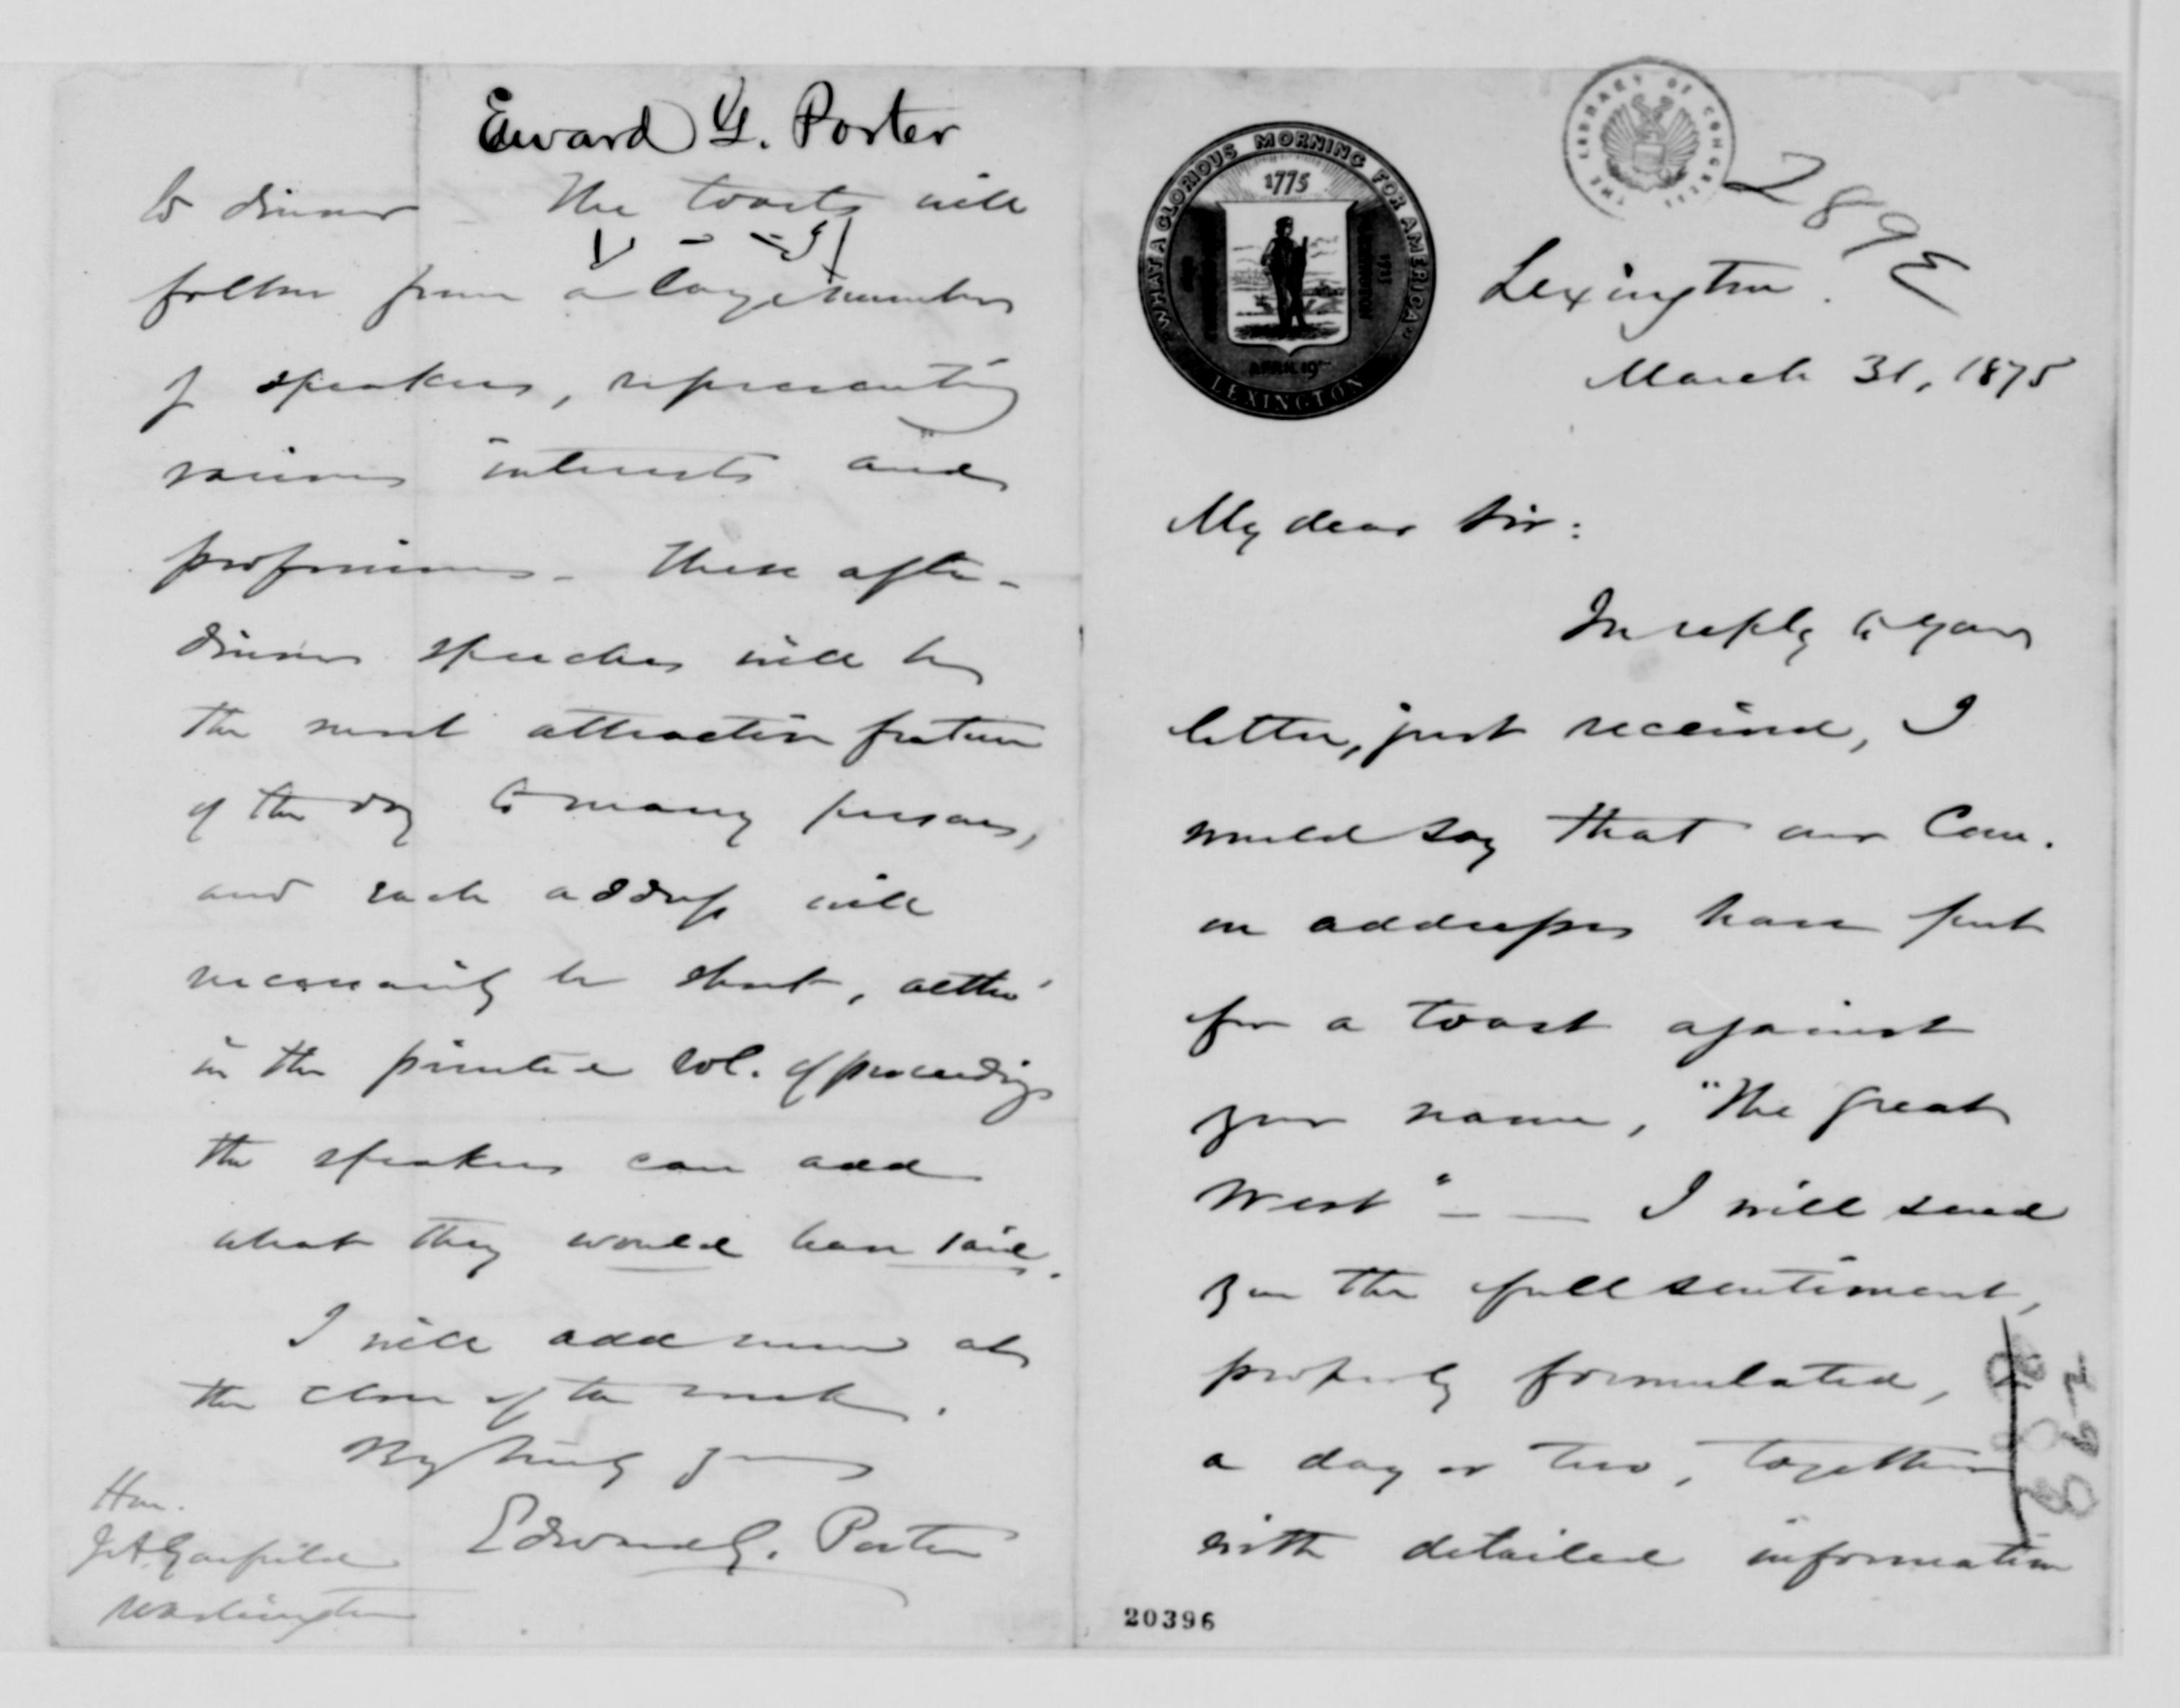 "WHAT A GLORIOUS MORNING FOR AMERICA"
1775
APRIL 19TH
LEXINGTON
THE LIBRARY OF CONGRESS
289 E
Lexington.
March 31, 1875
My dear Sir:
In reply to your
letter, just received, I
would say that our Com.
on addresses have put
for a toast against
your name, "The Great
West" - — I will send
you the full sentiment,
properly formulated, in
a day or two, together
with detailed information
20396
Edward G. Porter
to dinner – The toasts will
follow from a large number
of speakers, representing
various interests and
professions. These after-
dinner speeches will be
the most attractive feature
of the day to many persons,
and each address will
necessarily be short, altho'
in the printed vol. of proceedings
the speakers can add
what they would have said.
I will add more at
the close of the week.
Very truly yours
Edward G. Porter
Hon.
J A Garfield
Washington